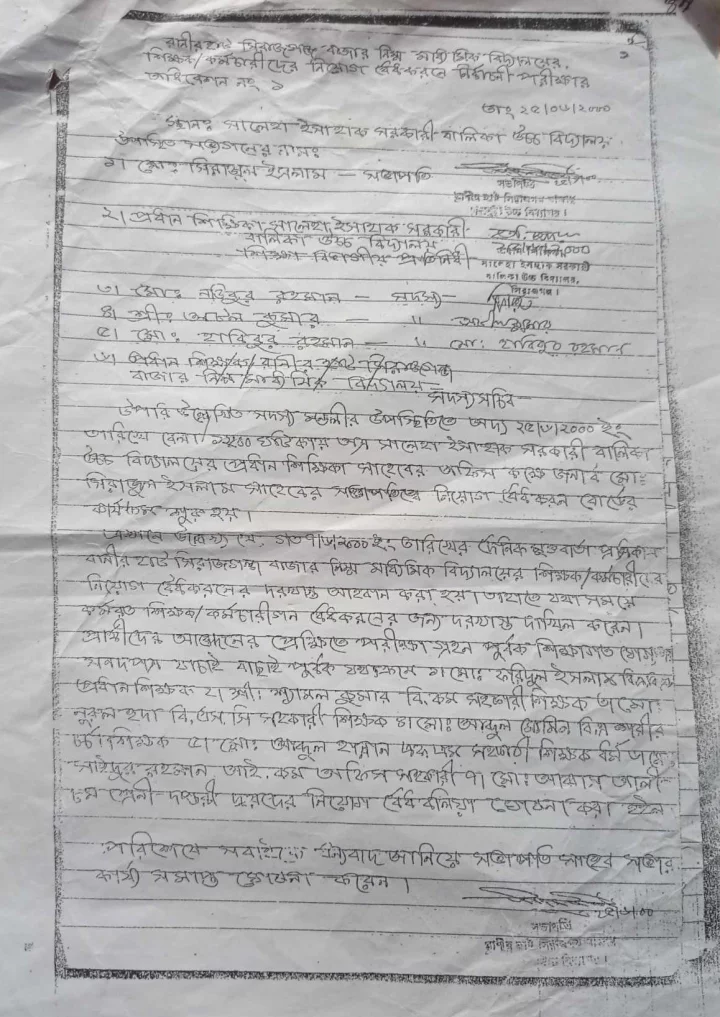 রানীরহাট সিরাজগঞ্জ বাজার নিম্ন মাধ্যমিক বিদ্যালয়ের
শিক্ষক/কর্মচারীদের নিয়োগ বৈধকরনে নির্বাচনী পরীক্ষার
অধিবেশন নং ১
তাং ২৫/০৩/২০০০
স্থানঃ সালেহা ইসাহাক সরকারী বালিকা উচ্চ বিদ্যালয়
উপস্থিত সভ্যগনের নামঃ
১। মোঃ সিরাজুল ইসলাম – সভাপতি
সভাপতি
২। প্রধান শিক্ষিকা সালেহা ইসাহাক সরকারী
বালিকা উচ্চ বিদ্যালয়
প্রতিনিধি
সালেহা ইসহাক সরকারী
বালিকা উচ্চ বিদ্যালয়,
সিরাজগঞ্জ।
৩। মোঃ রহমান – সদস্য –
৪। শ্রী কুমার – "
৫। মোঃ হাবিবুর রহমান – " মোঃ হাবিবুর রহমান
৬। প্রধান শিক্ষক/রানীরহাট সিরাজগঞ্জ
বাজার নিম্ন মাধ্যমিক বিদ্যালয় –
সদস্য সচিব
উপরি উল্লেখিত সদস্য মন্ডলীর উপস্থিতিতে অদ্য ২৫/৩/২০০০ ইং
তারিখে বেলা ঘটিকায় অত্র সালেহা ইসাহাক সরকারী বালিকা
উচ্চ বিদ্যালয়ের প্রধান শিক্ষিকা সাহেবের অফিস কক্ষে জনাব মোঃ
সিরাজুল ইসলাম সাহেবের সভাপতিত্বে নিয়োগ বৈধকরন বোর্ডের
কার্যক্রম শুরু হয়।
এখানে উল্লেখ্য যে, গত ইং তারিখের দৈনিক পত্রিকায়
রানীর হাট সিরাজগঞ্জ বাজার নিম্ন মাধ্যমিক বিদ্যালয়ের শিক্ষক/কর্মচারীদের
নিয়োগ বৈধকরনের দরখাস্ত আহবান করা হয়। তাহাতে যথা সময়ে
কর্মরত শিক্ষক/কর্মচারীগন বৈধকরনের জন্য দরখাস্ত দাখিল করেন।
প্রার্থীদের আবেদনের প্রেক্ষিতে পরীক্ষা গ্রহন পূর্বক শিক্ষাগত যোগ্যতার
সনদপত্র যাচাই বাছাই পূর্বক যথাক্রমে ১। মোঃ ফরিদুল ইসলাম
প্রধান শিক্ষক ২। শ্রীঃ শ্যামল কুমার বি.কম সহকারী শিক্ষক ৩। মোঃ
নুরুল হুদা বি.এস.সি সহকারী শিক্ষক ৪। মোঃ আব্দুল মোমিন শরীর
চর্চা শিক্ষক ৫। মোঃ আব্দুল হান্নান সহকারী শিক্ষক ধর্ম ৬। মোঃ
সাইদুর রহমান আই.কম অফিস সহকারী ৭। মোঃ আব্বাস আলী
৮ম শ্রেনী দপ্তরী দের নিয়োগ বৈধ বলিয়া ঘোষনা করা হইল
পরিশেষে সবাইকে ধন্যবাদ জানিয়ে সভাপতি সাহেব সভার
কার্য্য সমাপ্ত ঘোষনা করেন।
সভাপতি